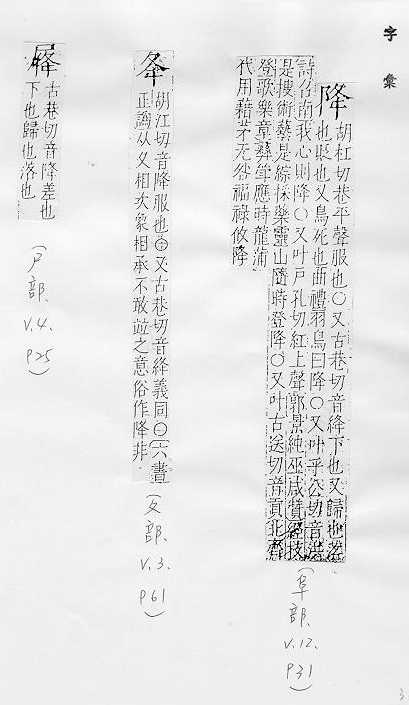 字彙
降
胡杠切巷平聲服也〇又古巷切音絳下也又歸也落
也貶也又鳥死也曲禮羽鳥曰降〇又叶乎公切音洪
詩召南我心則降〇又叶戶孔切紅上聲郭景純巫咸贊經技
是搜術藝是綜採藥靈山隨時登降〇又叶古送切音貢北齊
登歌樂章彝斝應時龍蒲
代用藉茅无咎福祿攸降
(阜部、
V.12.
P31)
夅
胡江切音降服也 又古巷切音絳義同 六書
正譌从夂相次象相承不敢並之意俗作降非
(夂部、
V.3.
P61)
古巷切音降差也
下也歸也落也
(尸部、
V.4.
P25)
3